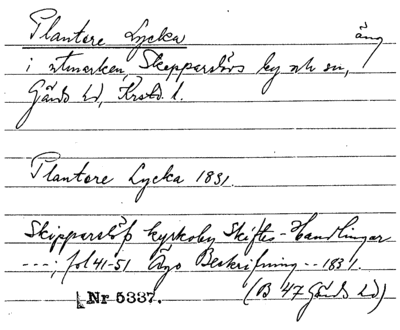 Plantere Lycka äng
i utmarken, Skepparslövs by och sn,
Gärds hd, Krstd. l.
Plantere Lycka 1831.
Skipparslöfs kyrkoby Skiftes-Handlingar
---; fol 41-51 Ägo Beskrifning -- 1831.
Nr 5337. (B 47 Gärds hd)